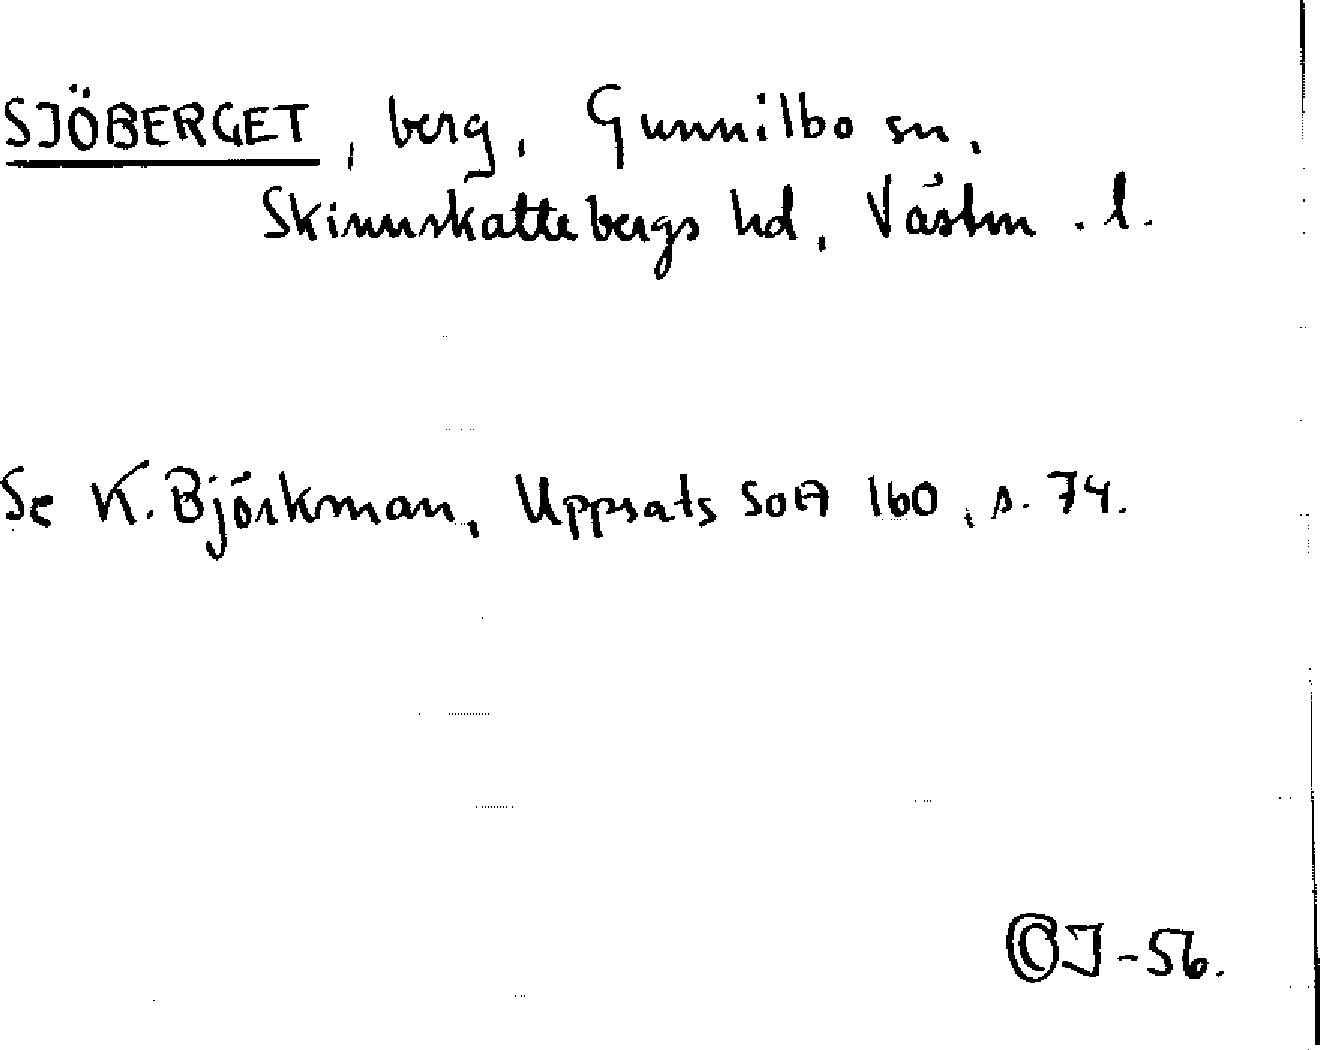 SJÖBERGET, berg, Gunnilbo sn,
Skinnskattebergs hd, Västm. l.
Se K. Björkman, Uppsats SOA 160, s. 74.
©J-56.